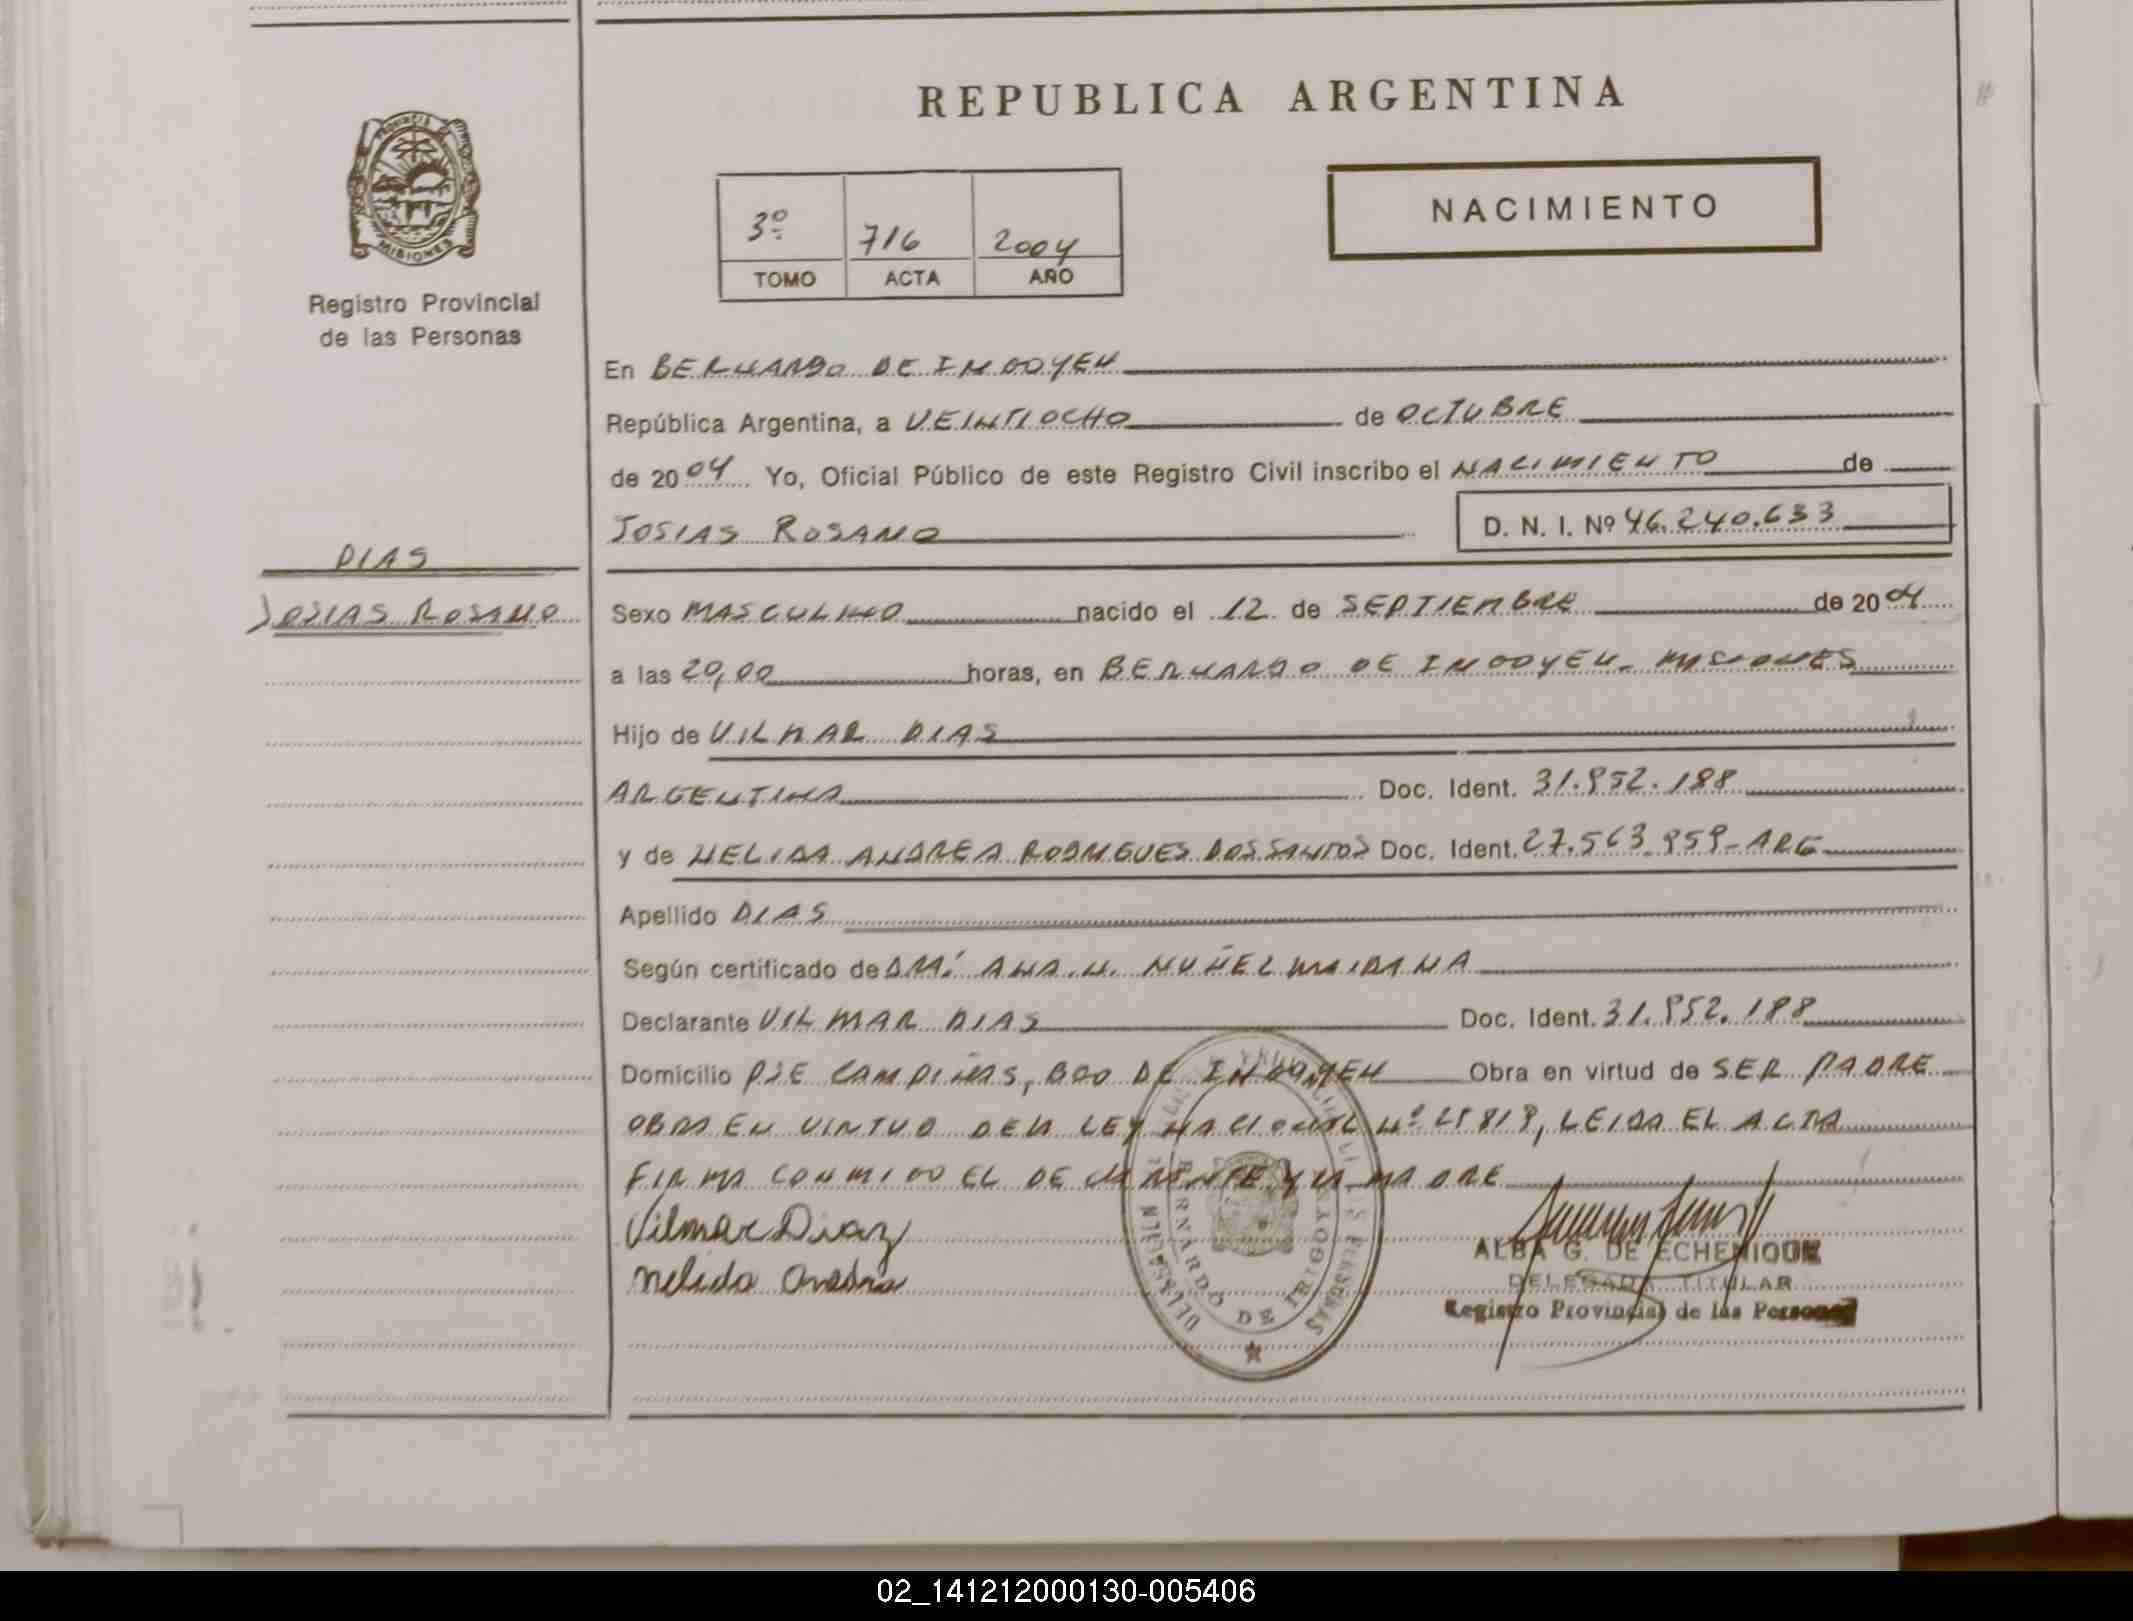 REPUBLICA ARGENTINA
PROVINCIA MISIONES
Registro Provincial
de las Personas
3º 716 2004
TOMO ACTA AÑO
NACIMIENTO
En BERNARDO DE IRIGOYEN
República Argentina, a VEINTIOCHO de OCTUBRE
de 2004 Yo, Oficial Público de este Registro Civil inscribo el NACIMIENTO de
JOSIAS ROSARIO D. N. I. Nº 46.240.633
DIAS
JOSIAS ROSARIO
Sexo MASCULINO nacido el 12 de SEPTIEMBRE de 2004
a las 20,00 horas, en BERNARDO DE IRIGOYEN - MISIONES
Hijo de VILMAR DIAS
ARGENTINA Doc. Ident. 31.952.188
y de NELIDA ANDREA RODRIGUES DOS SANTOS Doc. Ident. 27.563.959 - ARG
Apellido DIAS
Según certificado de ANA. N. NUÑEZ MAIDANA
Declarante VILMAR DIAS Doc. Ident. 31.952.188
Domicilio PJE CAMPIÑAS, BDO DE IRIGOYEN Obra en virtud de SER PADRE
OBRA EN VIRTUD DE LA LEY NACIONAL Nº 25819, LEIDA EL ACTA
FIRMA CONMIGO EL DECLARANTE Y LA MADRE
Vilmar Diaz
Nelida Andrea
BERNARDO DE IRIGOYEN
ALBA G. DE ECHENIQUE
DELEGADA TITULAR
Registro Provincial de las Personas
02_141212000130-005406